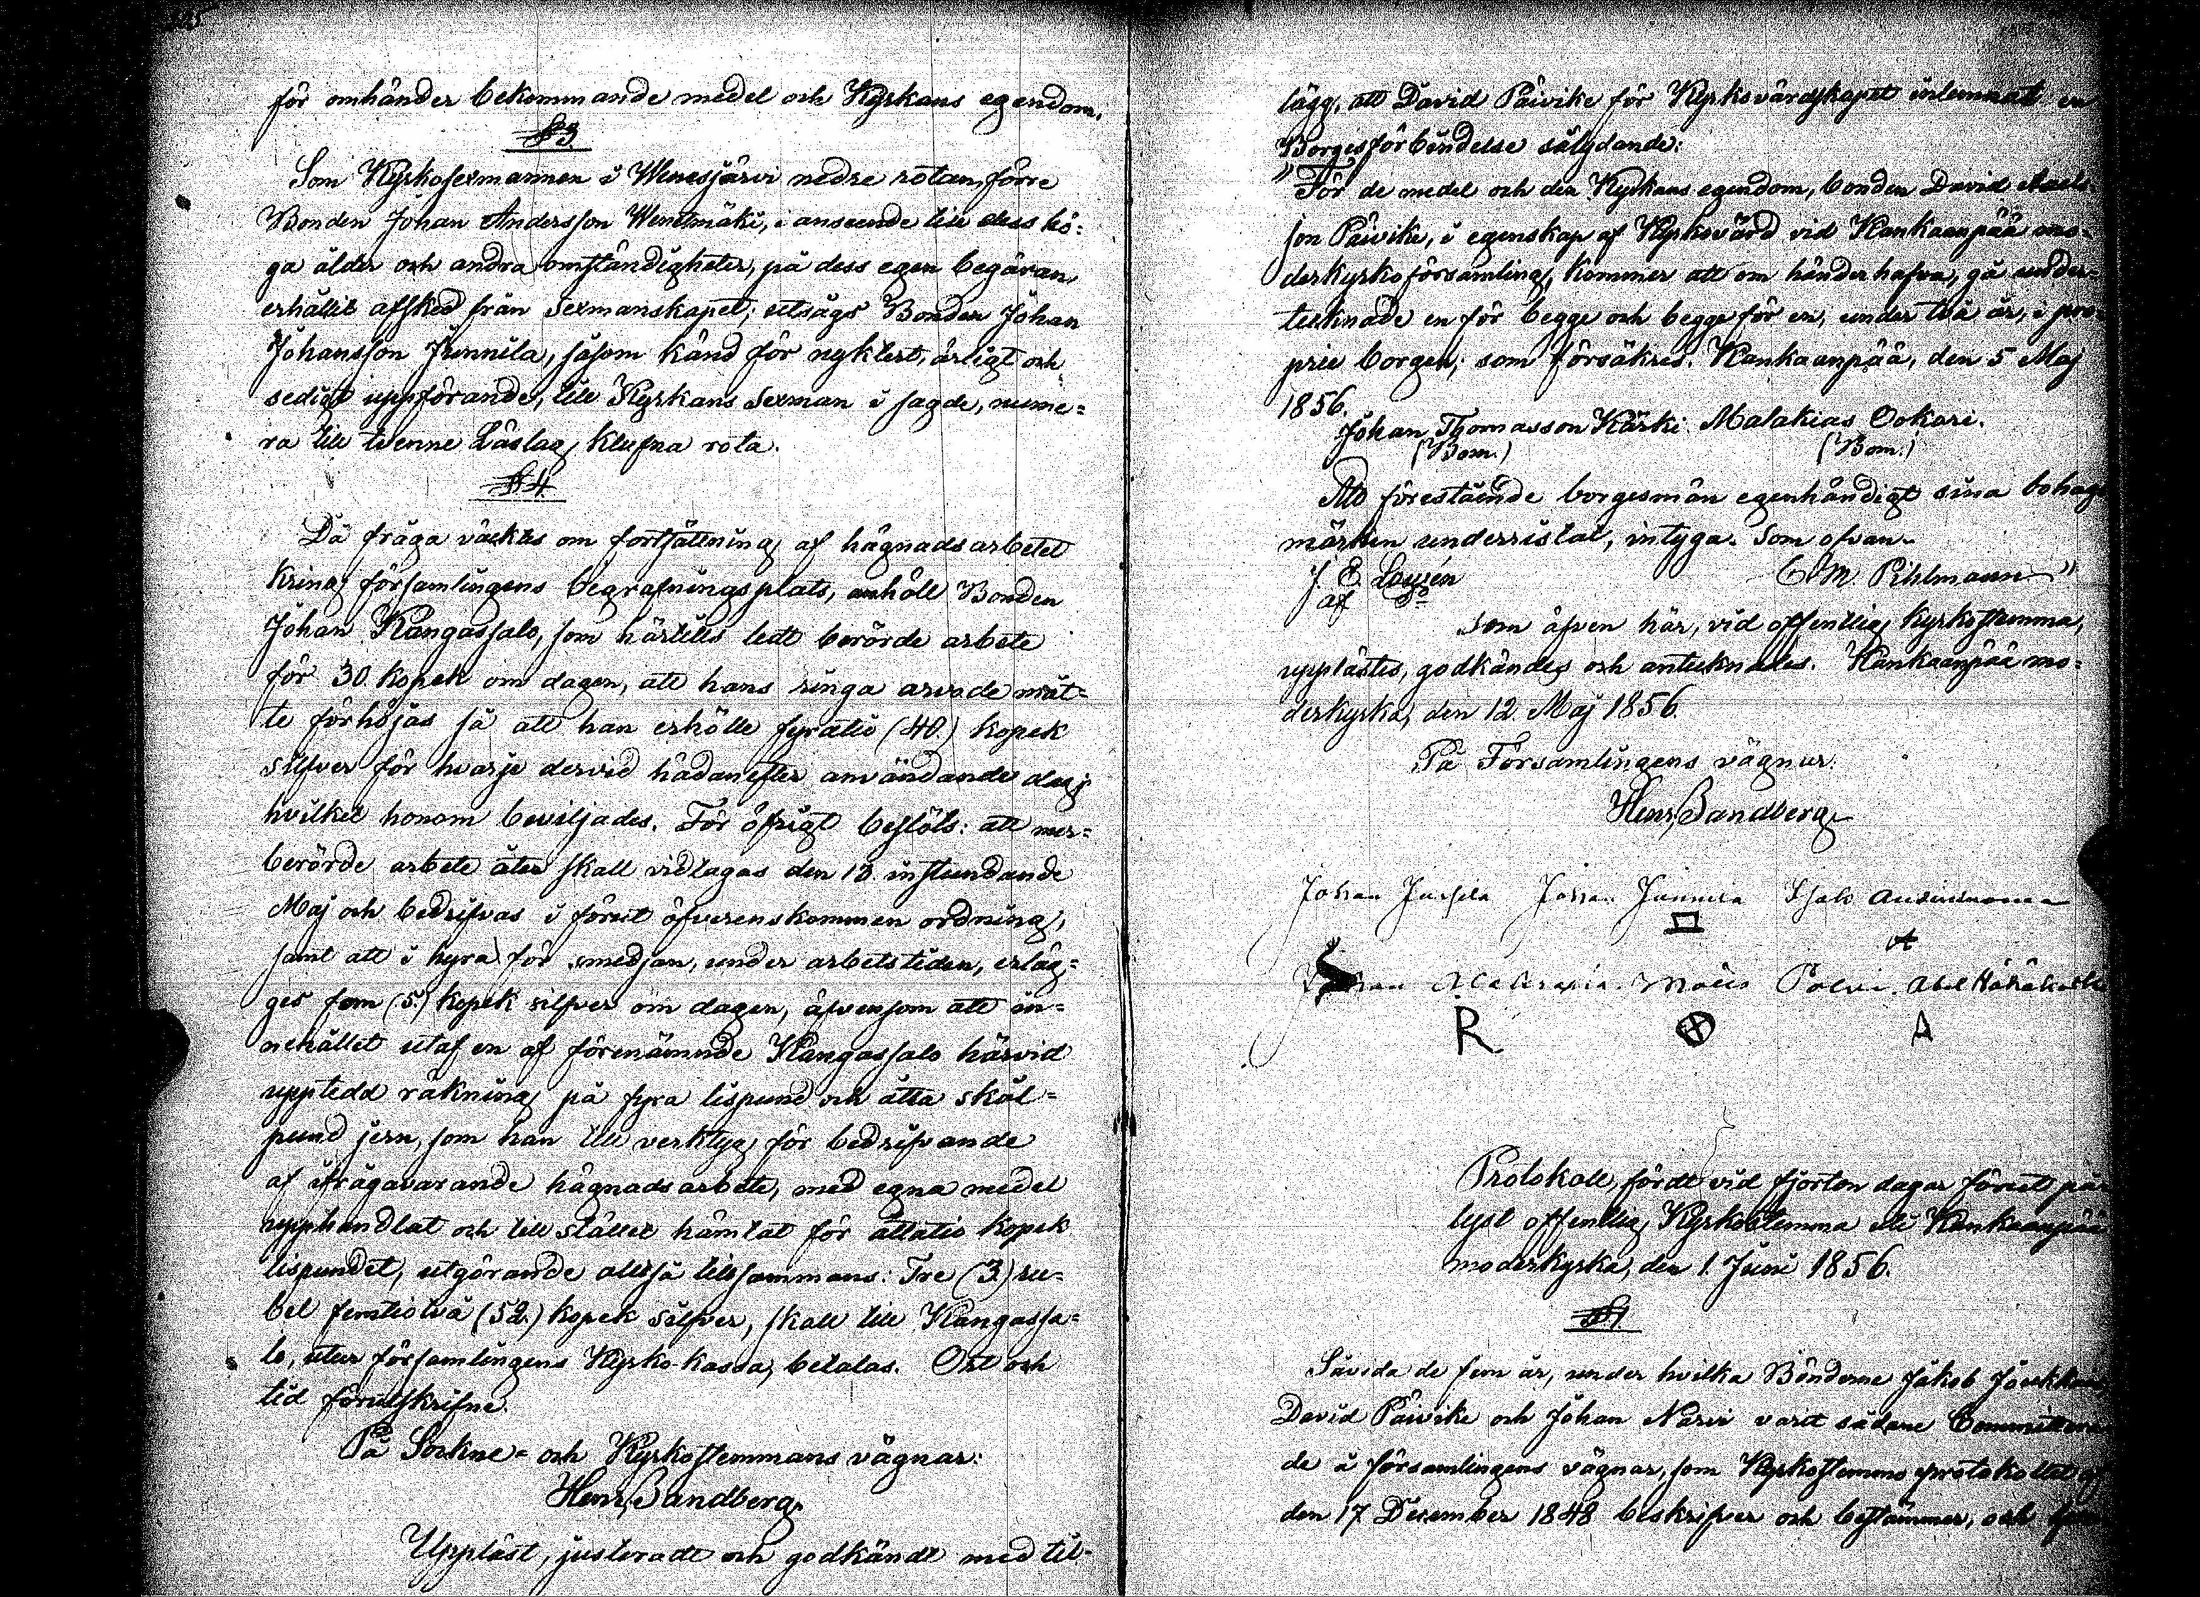 för omhänder bekommande medel och Kyrkans egendom.
§ 3
Som Kyrkosexmannen i Wenesjärvi nedre rotan, förre
Bonden Johan Andersson Wentmäki, i anseende till dess hö-
ga ålder och andra omständigheter, på dess egen begäran,
erhållit afsked från Sexmanskapet; utsågs Bonden Johan
Johansson Junnila, såsom känd för nyktert, ärligt och
sedigt uppförande, till Kyrkans Sexman i sagde, nume-
ra till tvenne Läslag klufna rota.
§ 4
Då fråga väcktes om fortsättning af hägnadsarbetet
kring församlingens begrafningsplats, anhöll Bonden
Johan Kangassalo, som härtills ledt berörde arbete
för 30. kopek om dagen, att hans ringa arvode måt-
te förhöjas så att han erhölle fyratio (40.) kopek
silfver för hvarje dervid hädanefter användande dag;
hvilket honom beviljades. För öfrigt beslöts: att mer-
berörde arbete åter skall vidtagas den 13. instundande
Maj och bedrifvas i förut öfverenskommen ordning,
samt att i hyra för smedjan, under arbetstiden, erläg-
ges fem (5.) kopek silfver om dagen, äfvensom att in-
nehållet utaf en af förenämnde Kangassalo härvid
uppteedd räkning på fyra lispund och åtta skål-
pund jern, som han till verktyg för bedrifvande
af ifrågavarande hägnadsarbete, med egna medel
upphandlat och till stället hämtat för åttatio kopek
lispundet, utgörande alltså tillsammans: Tre (3.) ru-
bel femtiotvå (52.) kopek silfver, skall till Kangassa-
lo, utur församlingens Kyrko-kassa, betalas. Ort och
tid förutskrifne.
På Sockne- och Kyrkostemmans vägnar:
Henr. Sandberg.
Uppläst, justeradt och godkändt med til-
lägg, att David Päivike för Kyrkovärdskapet inlemnat en
Borgesförbindelse sålydande:
"För de medel och den Kyrkans egendom, bonden David
son Päivike, i egenskap af Kyrkovärd vid Kankaanpää mo-
derkyrkoförsamling, kommer att om händer hafva, gå under-
tecknade en för begge och begge för en, under två år, i pro-
prie borgen; som försäkres. Kankaanpää, den 5 Maj
1856.
Johan Thomasson Kärki. Malakias Ookari.
(Bom.) (Bom.)
Att förestående borgesmän egenhändigt sina bohags
märken underristat, intyga. Som ofvan
J. E. af C M Pihlmann "
Som äfven här, vid offentlig Kyrkostemma,
upplästes, godkändes och antecknades. Kankaanpää mo-
derkyrka, den 12. Maj 1856.
På Församlingens vägnar:
Henr. Sandberg
Johan Johan Junnila
A
Johan
R A
Protokoll, fördt vid fjorton dagar förut på-
lyst offentlig Kyrkostemma uti Kankaanpää
moderkyrka, den 1. Juni 1856.
§ 1
Såvida de fem år, under hvilka Bönderne Jakob
David Päivike och Johan Närvi varit sådane Committera-
de å församlingens vägnar, som Kyrkostemmo protokollet af
den 17 December 1848 beskrifver och bestämmer, och